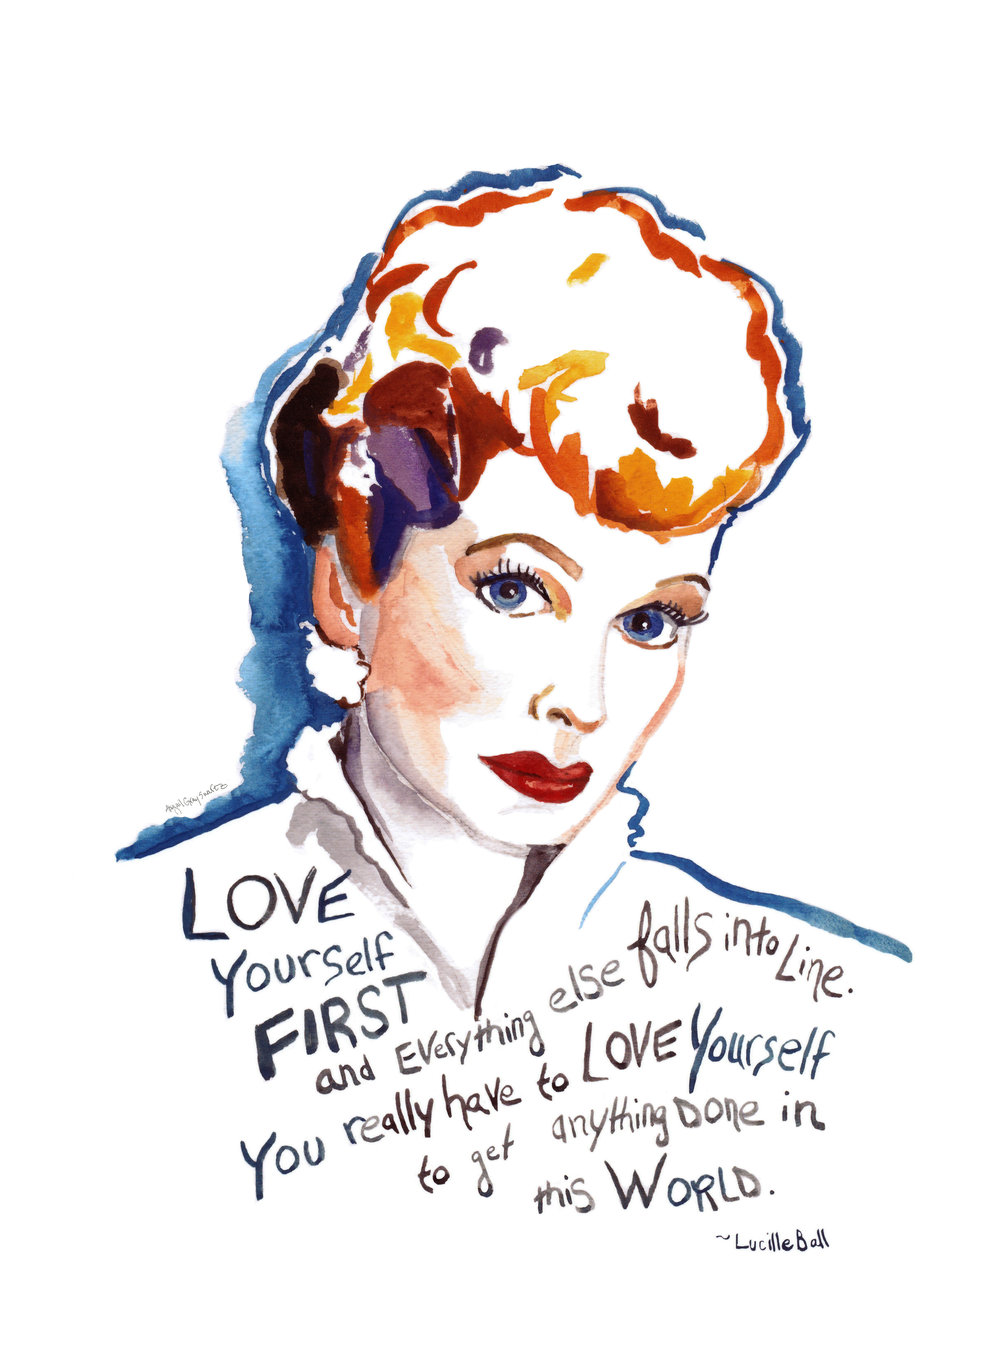 LOVE
Yourself
FIRST
and Everything else falls into Line.
You really have to LOVE Yourself
to get anything Done in
this WORLD.
~Lucille Ball